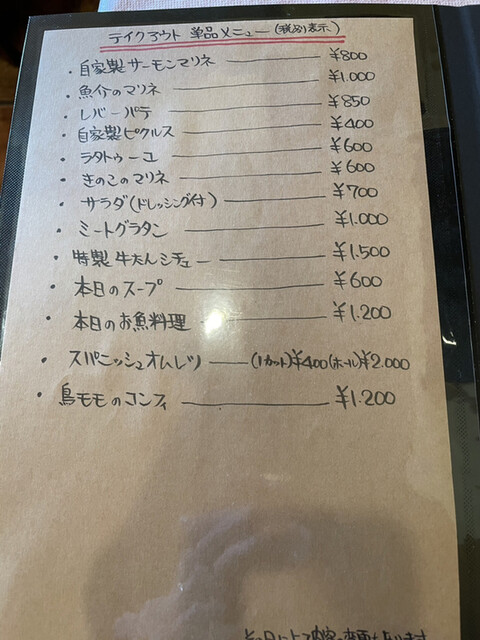 テイクアウト 単品メニュー(税別表示)
・自家製サーモンマリネ ¥800
・魚介のマリネ ¥1.000
・レバーパテ ¥850
・自家製ピクルス ¥400
・ラタトゥーユ ¥600
・きのこのマリネ ¥600
・サラダ(ドレッシング付) ¥700
・ミートグラタン ¥1.000
・特製牛たんシチュー ¥1.500
・本日のスープ ¥600
・本日のお魚料理 ¥1.200
・スパニッシュオムレツ (1カット)¥400(ホール)¥2.000
・鳥モモのコンフィ ¥1.200